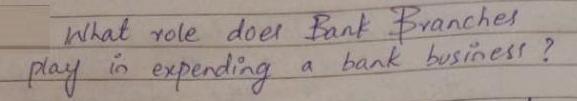 What role does Bank Branches
play in expending a bank business?